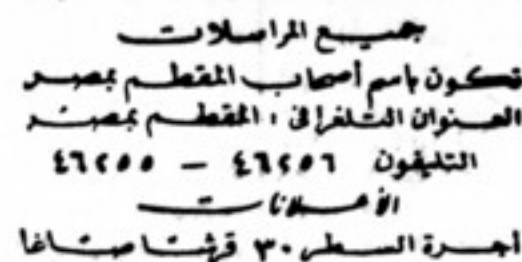 جميع المراسلات
تكون باسم أصحاب المقطم بمصر
العنوان التلغرافى : المقطم بمصر
التليفون ٤٦٢٥٦ – ٤٦٢٥٥
الأعلانات
أجرة السطر ٣٠ قرشا صاغا